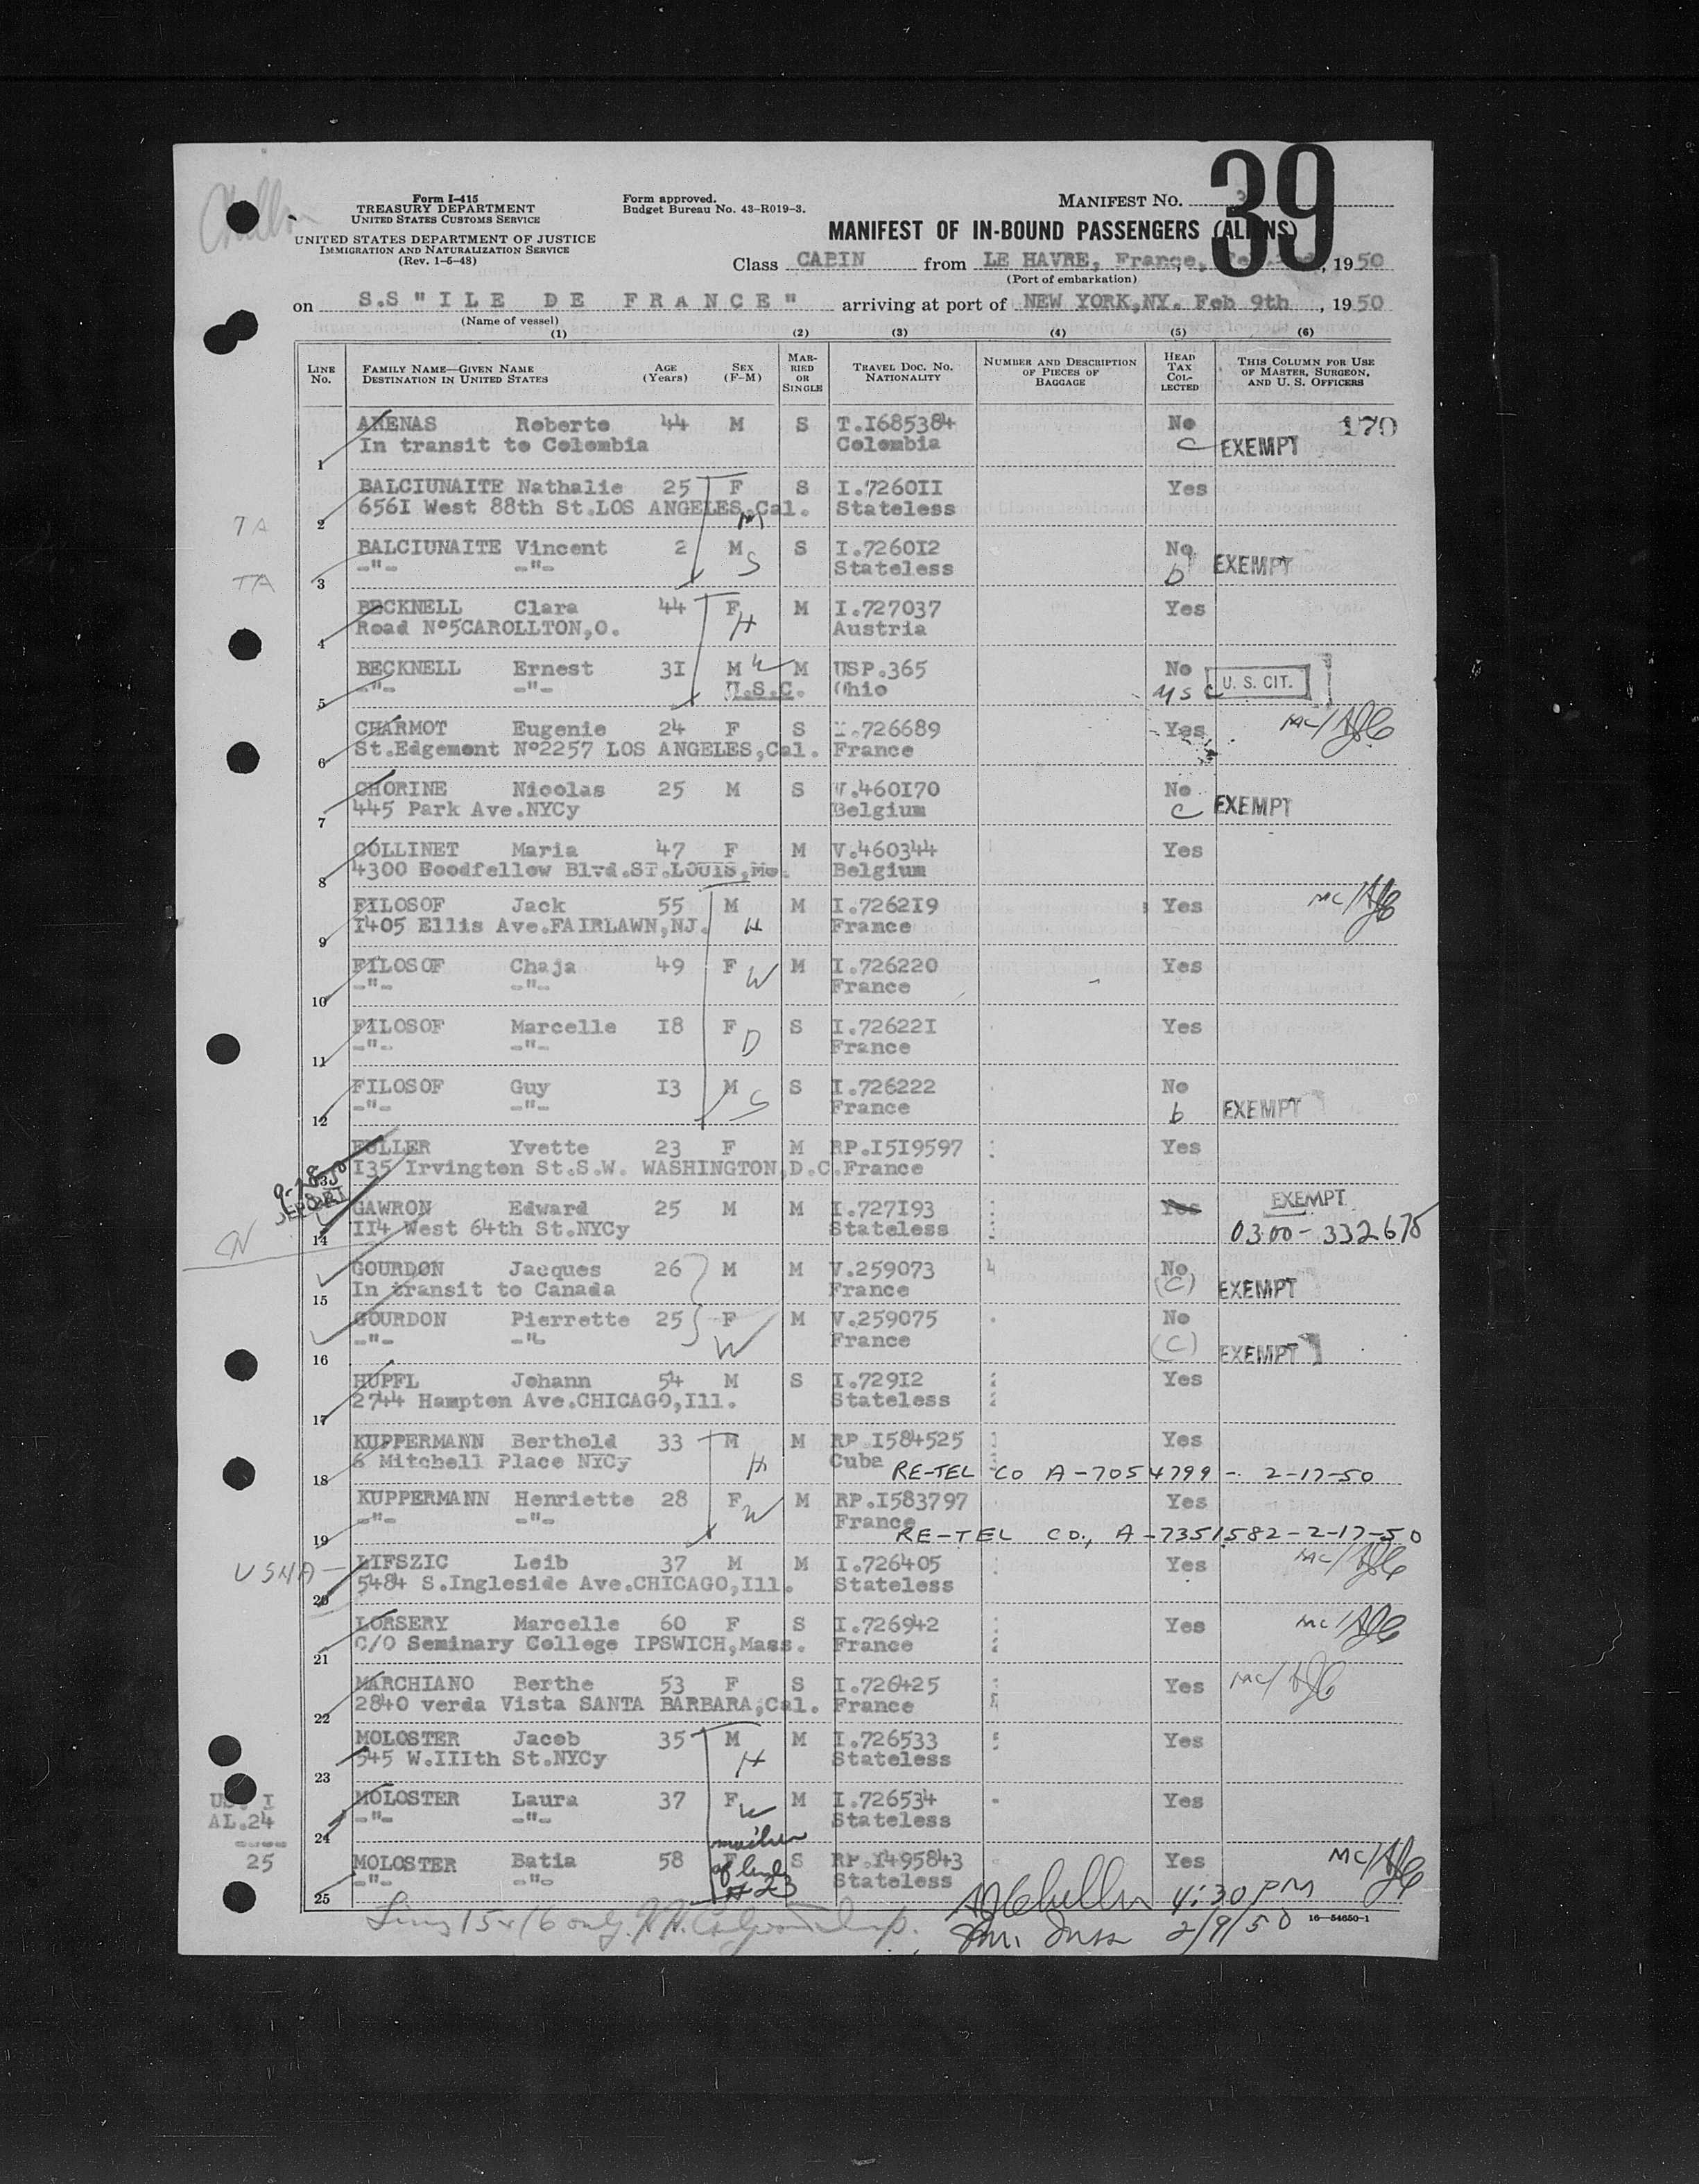 39
Form I-415
TREASURY DEPARTMENT
UNITED STATES CUSTOMS SERVICE
UNITED STATES DEPARTMENT OF JUSTICE
IMMIGRATION AND NATURALIZATION SERVICE
(Rev. 1-5-48)
Form approved.
Budget Bureau No. 43-R019-3.
MANIFEST NO.
MANIFEST OF IN-BOUND PASSENGERS (ALIENS)
Class CABIN from LE HAVRE, France, , 1950
(Port of embarkation)
on S.S "ILE DE FRANCE" arriving at port of NEW YORK,NY. Feb 9th , 1950
(Name of vessel)
(1) (2) (3) (4) (5) (6)
LINE No. FAMILY NAME—GIVEN NAME DESTINATION IN UNITED STATES AGE (Years) SEX (F-M) MARRIED OR SINGLE TRAVEL DOC. NO. NATIONALITY NUMBER AND DESCRIPTION OF PIECES OF BAGGAGE HEAD TAX COLLECTED THIS COLUMN FOR USE OF MASTER, SURGEON, AND U. S. OFFICERS
ARENAS Roberto 44 M S T.I685384 No 170
1 In transit to Colombia Colombia C EXEMPT
BALCIUNAITE Nathalie 25 F S I.7260II Yes
2 656I West 88th St.LOS ANGELES,Cal. M Stateless
7A
BALCIUNAITE Vincent 2 M S I.7260I2 No
3 -"- -"- S Stateless b EXEMPT
TA
BECKNELL Clara 44 F M I.727037 Yes
4 Road Nº5CAROLLTON,O. H Austria
BECKNELL Ernest 3I M W M USP.365 No
5 -"- -"- U.S.C. Ohio USC U. S. CIT.
CHARMOT Eugenie 24 F S I.726689 Yes MC/
6 St.Edgemont Nº2257 LOS ANGELES,Cal. France
CHORINE Nicolas 25 M S V.460I70 No
7 445 Park Ave.NYCy Belgium C EXEMPT
COLLINET Maria 47 F M V.460344 Yes
8 4300 Goodfellow Blvd.ST.LOUIS,Mo. Belgium
FILOSOF Jack 55 M M I.7262I9 Yes MC/
9 I405 Ellis Ave.FAIRLAWN,NJ. H France
FILOSOF Chaja 49 F M I.726220 Yes
10 -"- -"- W France
FILOSOF Marcelle I8 F S I.72622I Yes
11 -"- -"- D France
FILOSOF Guy I3 M S I.726222 No
12 -"- -"- S France b EXEMPT
FULLER Yvette 23 F M RP.I5I9597 Yes
I35 Irvington St.S.W. WASHINGTON,D.C. France
GAWRON Edward 25 M M I.727I93 Yes EXEMPT
14 II4 West 64th St.NYCy Stateless 0300-332675
GOURDON Jacques 26 M M V.259073 No
15 In transit to Canada France (C) EXEMPT
GOURDON Pierrette 25 F M V.259075 No
16 -"- -"- W France (C) EXEMPT
HUPFL Johann 54 M S I.729I2 Yes
17 2744 Hampton Ave.CHICAGO,Ill. Stateless
KUPPERMANN Berthold 33 M M RP I584525 Yes
18 6 Mitchell Place NYCy H Cuba RE-TEL CO A-7054799 - 2-17-50
KUPPERMANN Henriette 28 F M RP.I583797 Yes
19 -"- -"- W France RE-TEL CO., A-7351582-2-17-50
USNA- LIFSZIC Leib 37 M M I.726405 Yes MC/
20 5484 S.Ingleside Ave.CHICAGO,Ill. Stateless
LORSERY Marcelle 60 F S I.726942 Yes MC/
21 C/O Seminary College IPSWICH,Mass. France
MARCHIANO Berthe 53 F S I.726425 Yes MC/
22 2840 verda Vista SANTA BARBARA,Cal. France
MOLOSTER Jacob 35 M M I.726533 Yes
23 545 W.IIIth St.NYCy H Stateless
MOLOSTER Laura 37 F M I.726534 Yes
24 -"- -"- W Stateless
US. I
AL.24
----
25
mother of line # 23
MOLOSTER Batia 58 F S RP.I495843 Yes MC/
25 -"- -"- Stateless
Lines 15 & 16 only.
4:30 PM
2/9/50
16—54650-1